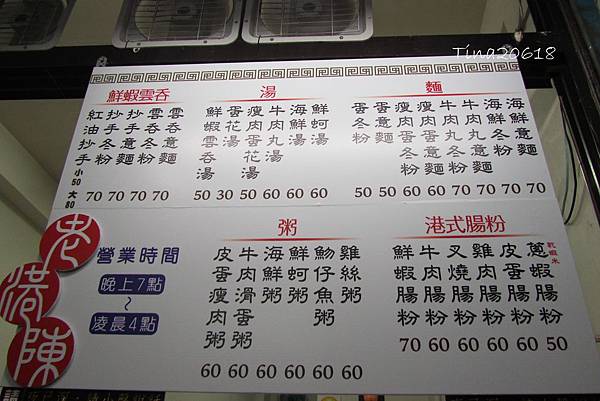 Tina20618
鮮蝦雲吞
紅油抄手
小50
大80
抄手冬粉
抄手意麵
雲吞冬粉
雲吞意麵
70 70 70 70
湯
鮮蝦雲吞湯
蛋花湯
瘦肉蛋花湯
牛肉丸湯
海鮮湯
鮮蚵湯
50 30 50 60 60 60
麵
蛋冬粉
蛋意麵
瘦肉蛋冬粉
瘦肉蛋意麵
牛肉丸冬粉
牛肉丸意麵
海鮮冬粉
海鮮意麵
50 50 60 60 70 70 70 70
老港陳
營業時間
晚上7點
~
凌晨4點
粥
皮蛋瘦肉粥
牛肉滑蛋粥
海鮮粥
鮮蚵粥
魩仔魚粥
雞絲粥
60 60 60 60 60 60
港式腸粉
鮮蝦腸粉
牛肉腸粉
叉燒腸粉
雞肉腸粉
皮蛋腸粉
蔥蝦腸粉
乾蝦米
70 60 60 60 60 50